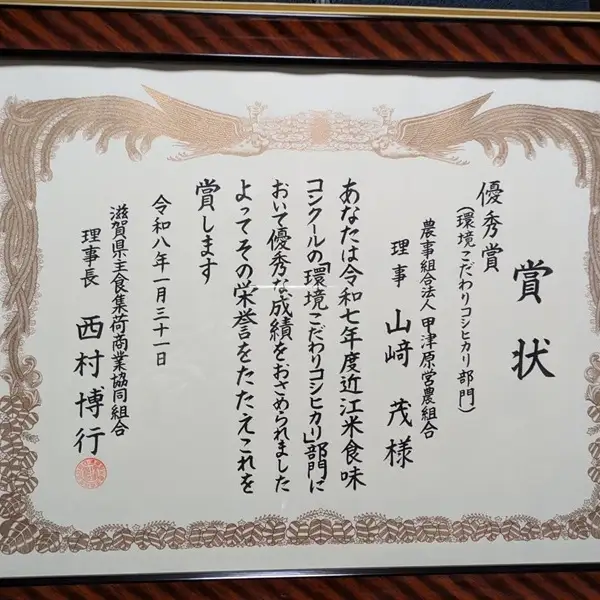 賞状
優秀賞
(環境こだわりコシヒカリ部門)
農事組合法人 甲津原営農組合
理事 山﨑 茂様
あなたは令和七年度近江米食味
コンクールの「環境こだわりコシヒカリ」部門に
おいて優秀な成績をおさめられました
よってその栄誉をたたえこれを
賞します
令和八年一月三十一日
滋賀県主食集荷商業協同組合
理事長 西村博行